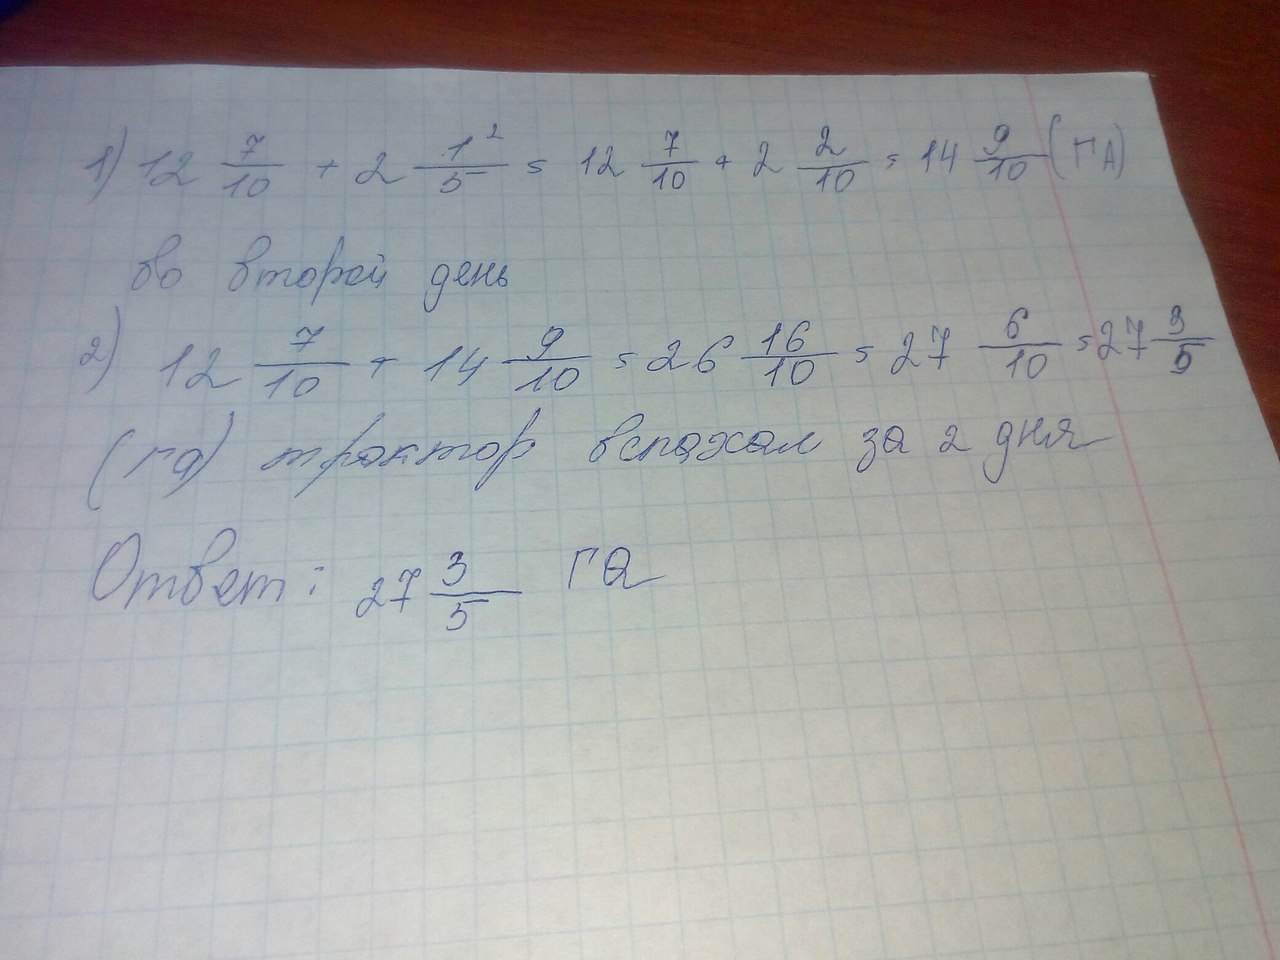 1) 12 7/10 + 2 1²/5 = 12 7/10 + 2 2/10 = 14 9/10 (ГА)
во второй день
2) 12 7/10 + 14 9/10 = 26 16/10 = 27 6/10 = 27 3/5
(га) трактор вспахал за 2 дня
Ответ: 27 3/5 га